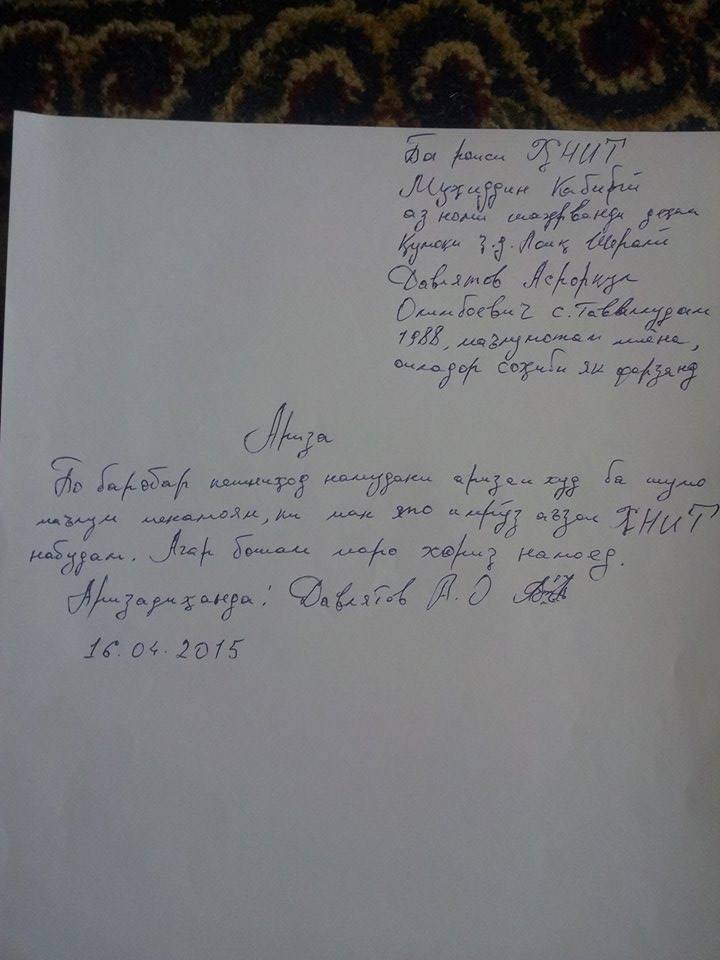 Ба раиси ҲНИТ
Муҳиддин Кабирӣ
аз номи шаҳрванди деҳаи
Қумоки ҷ.д. Лоиқ Шералӣ
Давлятов Асрорқул
Олимбоевич с. Таввалудам
1988, маълумотам миёна,
оиладор соҳиби як фарзанд
Ариза
Бо баробар пешниҳод намудани аризаи худ ба шумо
маълум менамоям, ки ман то имрӯз аъзои ҲНИТ
набудам. Агар бошам маро хориҷ намоед.
Аризадиҳанда: Давлятов А.О
16.04.2015